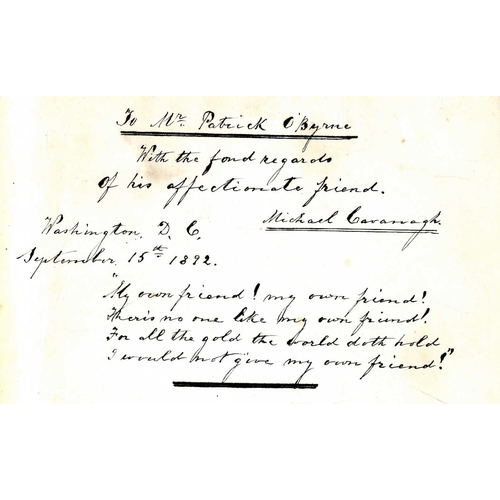 To Mr. Patrick O'Byrne
With the fond regards
of his affectionate friend.
Michael Cavanagh.
Washington, D. C,
September, 15th 1892.
"My own friend! my own friend!
Ther's no one like my own friend!
For all the gold the world doth hold
I would not give my own friend!"